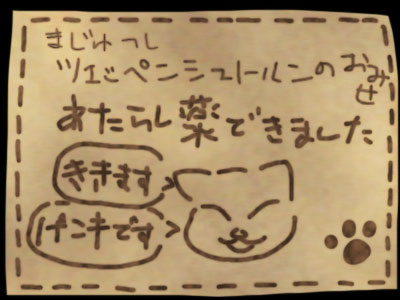 まじゅつし
ツェペンシュトールンのおみせ
あたらし薬できました
ききます
げンキです